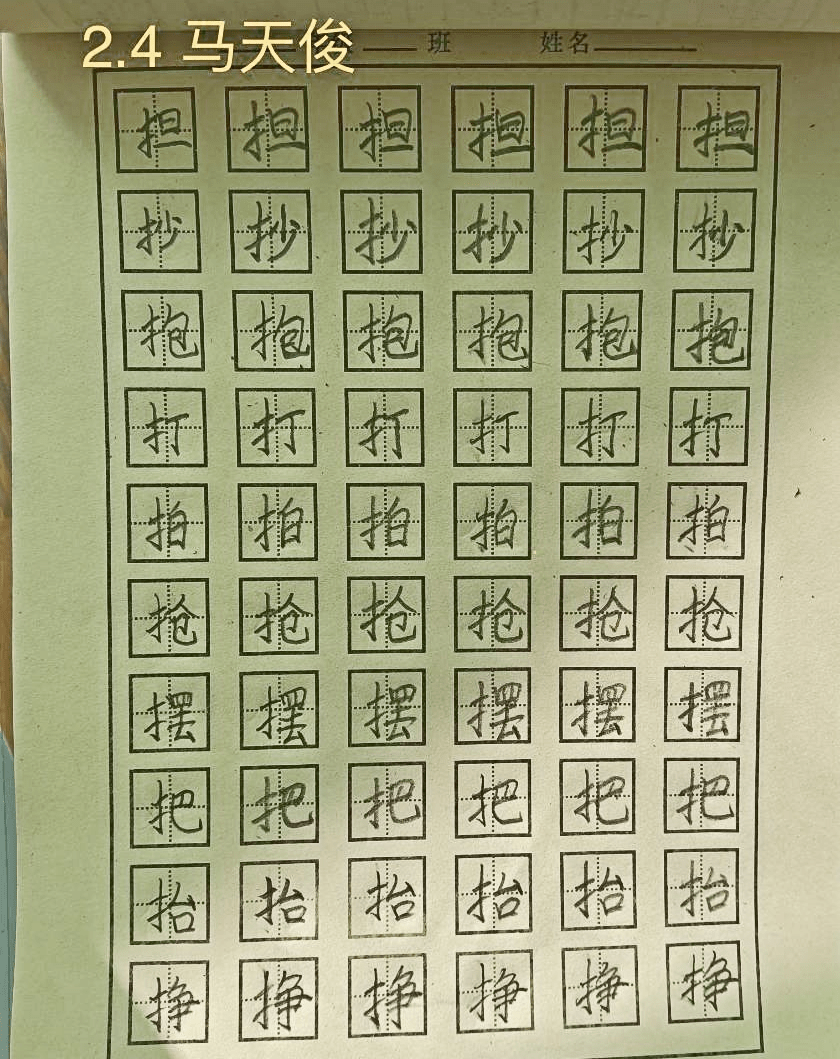 2.4 马天俊 班 姓名
担 担 担 担 担 担
抄 抄 抄 抄 抄 抄
抱 抱 抱 抱 抱 抱
打 打 打 打 打 打
拍 拍 拍 拍 拍 拍
抢 抢 抢 抢 抢 抢
摆 摆 摆 摆 摆 摆
把 把 把 把 把 把
抬 抬 抬 抬 抬 抬
挣 挣 挣 挣 挣 挣